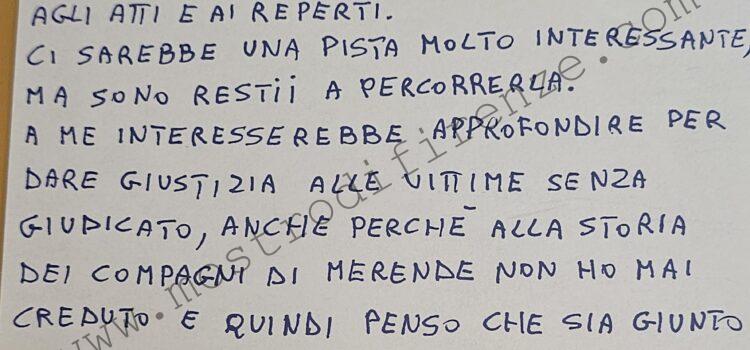 AGLI ATTI E AI REPERTI.
CI SAREBBE UNA PISTA MOLTO INTERESSANTE,
MA SONO RESTII A PERCORRERLA.
A ME INTERESSEREBBE APPROFONDIRE PER
DARE GIUSTIZIA ALLE VITTIME SENZA
GIUDICATO, ANCHE PERCHĒ ALLA STORIA
DEI COMPAGNI DI MERENDE NON HO MAI
CREDUTO E QUINDI PENSO CHE SIA GIUNTO
www.mostrodifirenze.com